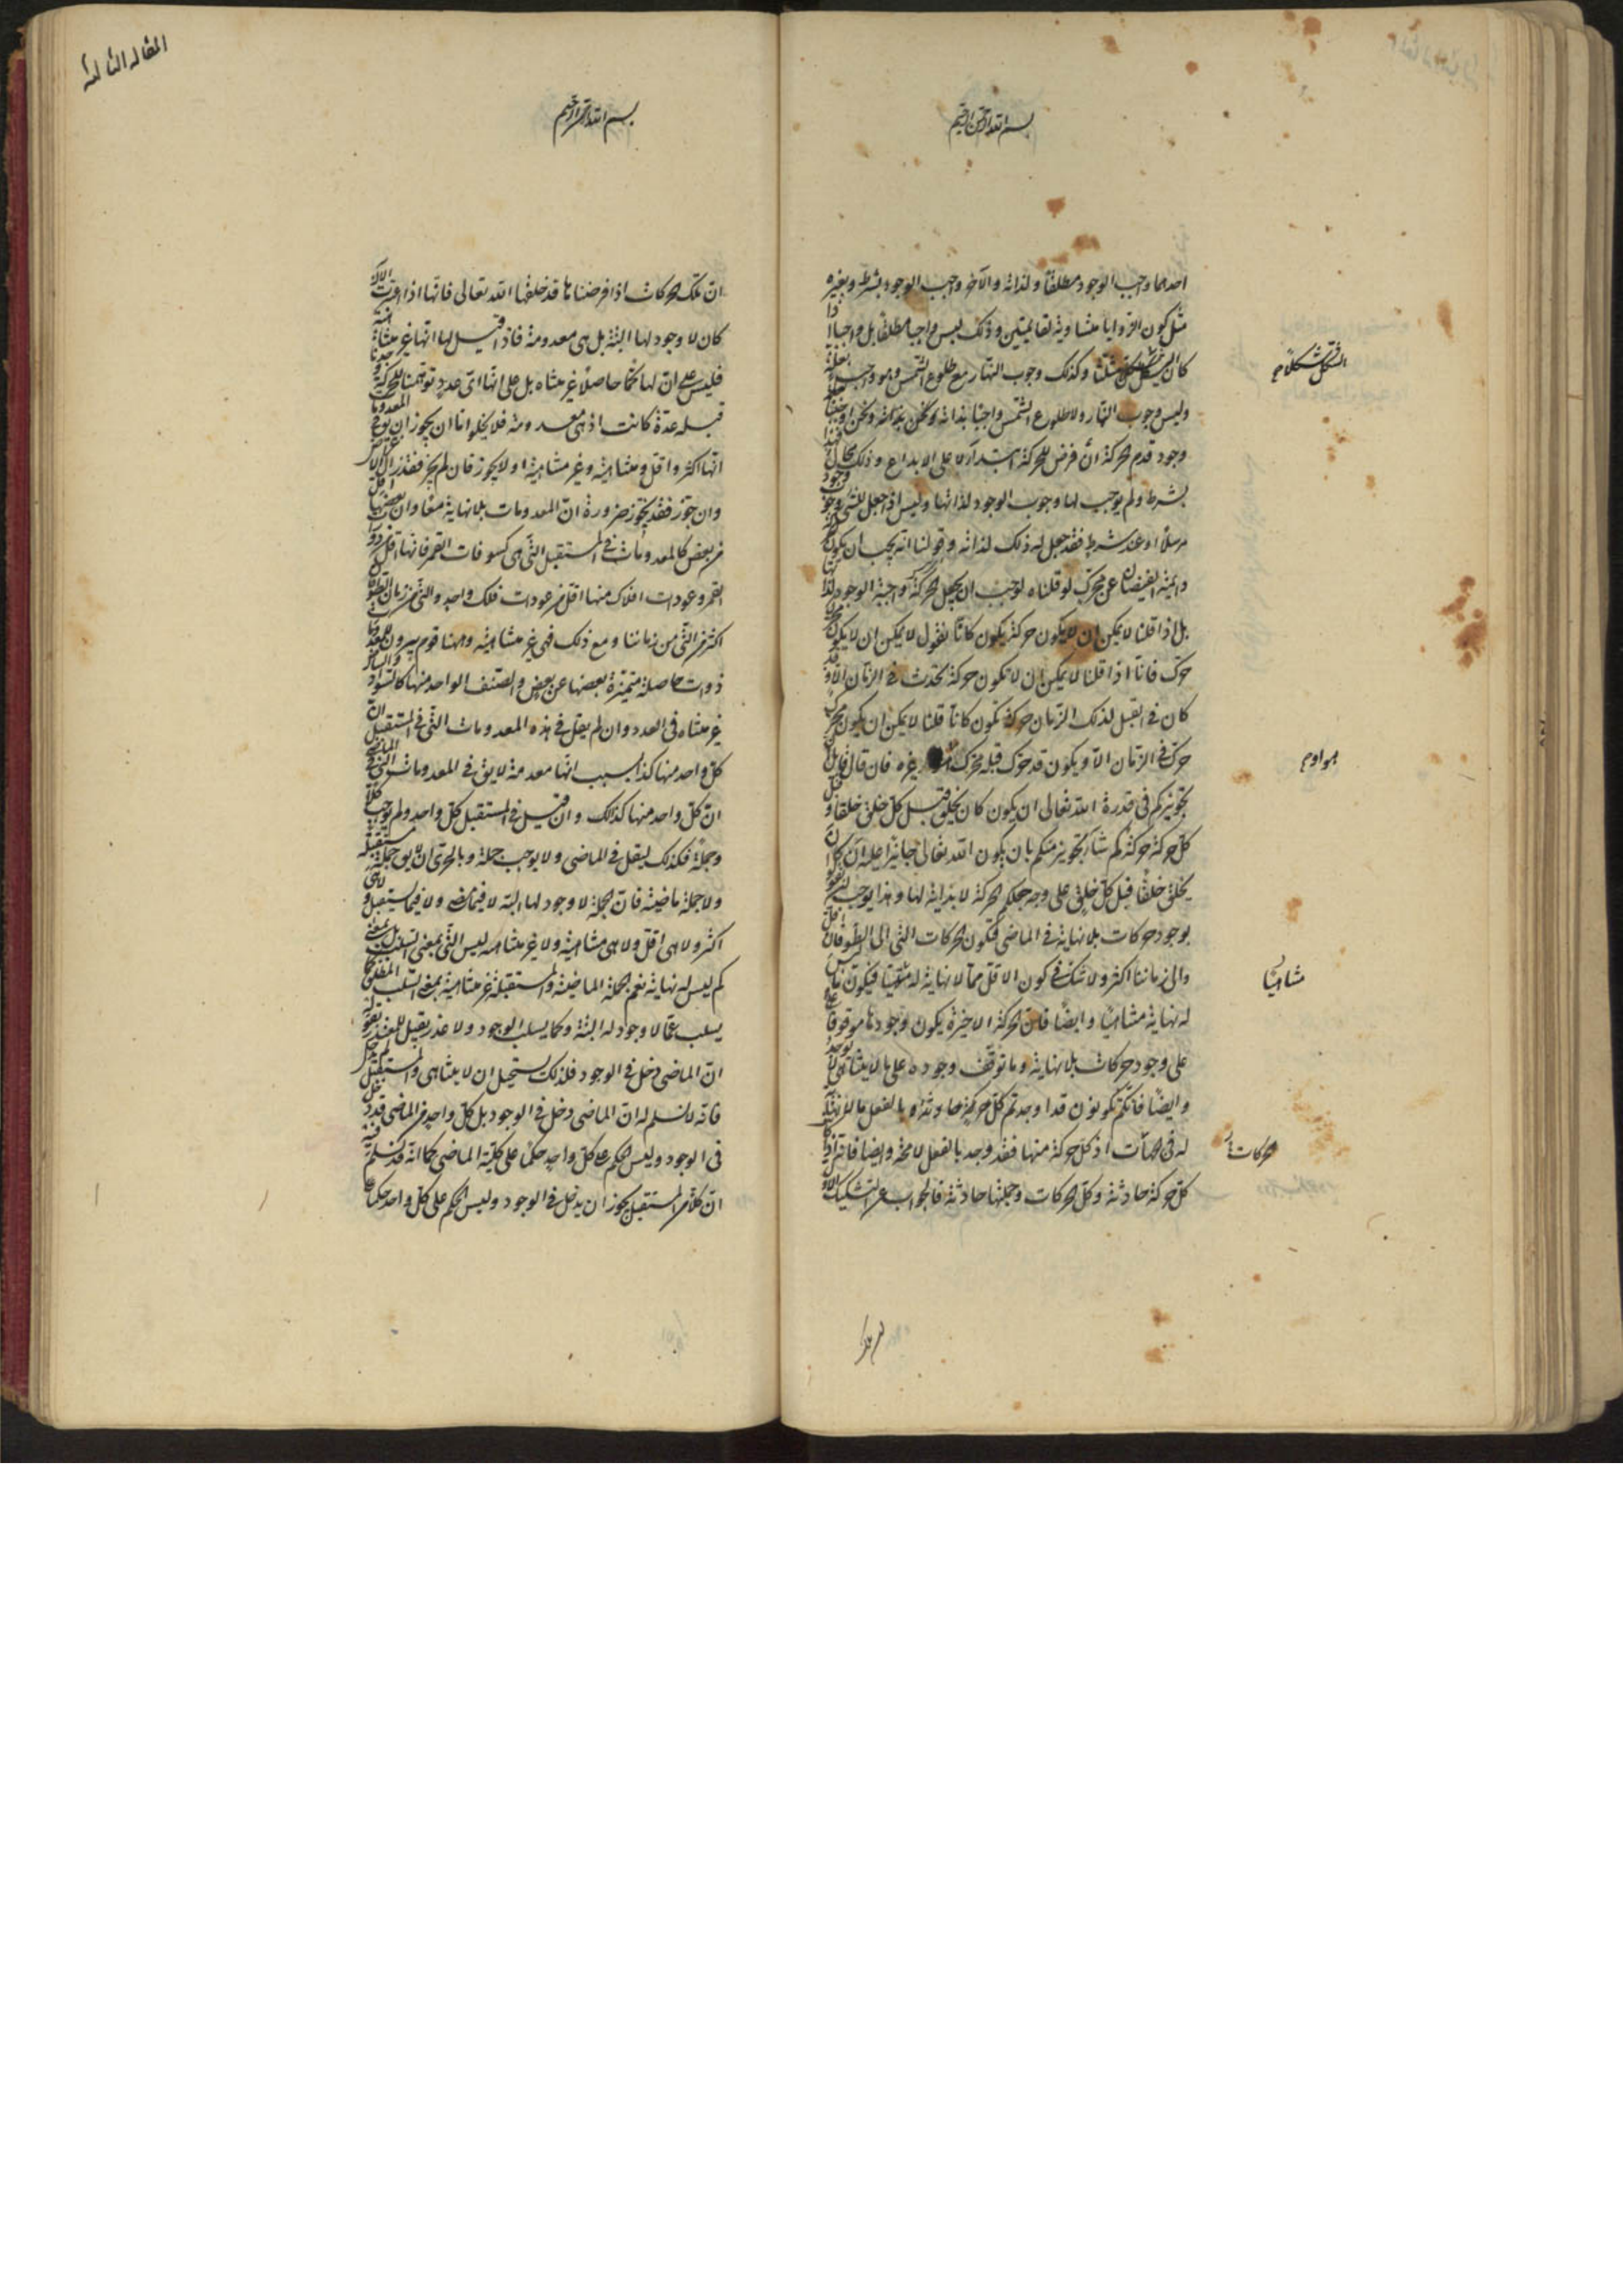 بسم الله الرحمن الرحيم
احدهما واجب الوجود مطلقا ولذاته والآخر واجب الوجود بشرط وبغيره
مثل كون الزوايا متساوية لقايمتين وذلك ليس واجبا مطلقا بل واجبا اذا
كان الشكل مثلثا وكذلك وجوب النهار مع طلوع الشمس وهو واجب لعلة
وليس وجوب النهار ولا طلوع الشمس واجبا بذاته ونحن
وجود قدم الحركة ان فرض للحركة ابتداء لا على الابداع وذلك محال
بشرط ولم يوجب لها وجوب الوجود لذاتها وليس اذا جعل لشئ وجوب وجود
مرسلا او عند شرط فقد جعل له ذلك لذاته وقولنا انه يجب ان يكون
دايمة الفيضان عن محرك لو قلناه لوجب ان يجعل الحركة واجبة الوجود لذاتها
بل اذا قلنا لا يمكن ان لا يكون حركة يكون كانا نقول لا يمكن ان لا يكون محرك
حرك فانا اذا قلنا لا يمكن ان لا تكون حركة تحدث في الزمان الا وقد
كان في القبل لذلك الزمان حركة تكون كانا قلنا لا يمكن ان يكون محرك
حرك في الزمان الا ويكون قد حرك قبله محرك هو او غيره فان قال قايل
تجويزكم في قدرة الله تعالى ان يكون كان يخلق قبل كل خلق خلقا وقبل
كل حركة حركة
يخلق خلقا قبل كل خلق على وجه جعلكم الحركة لا بداية لها وهذا يوجب القول
بوجود حركات بلا نهاية في الماضي فتكون الحركات التي الى الطوفان اقل
والى زماننا اكثر ولا شك في كون الاقل مما لا نهاية له متناهيا فيكون ما ليس
له نهاية متناهيا وايضا فان الحركة الاخيرة يكون وجودها موقوفا
على وجود حركات بلا نهاية وما توقف وجوده على ما لا يتناهى لا يوجد
وايضا فانكم تكونون قد اوجدتم كل حركة حادثة وبالفعل ما لا نهاية
له في اذ كل حركة منها فقد وجد بالفعل لا محة وايضا فانه اذا كان
كل حركة حادثة وكل الحركات وجملتها حادثة فالجواب عن التشكيك الاول
الشكل شكلا م
هو او م
متناهيا
الحركات
المقاله الثالثة
بسم الله الرحمن الرحيم
ان تلك الحركات اذا فرضناها قد خلقها الله تعالى فانها اذا اعتبرت الآن
كان لا وجود لها البتة بل هي معدومة فاذا قيل لها انها غير متناهية
فليس على ان لها كما حاصلا غير متناه بل على انها اى عدد توهمنا للحركة وجدنا
قبله عدة كانت اذ هي معدومة فلا يخلو اما ان يجوز ان يوقع على المعدومات
انها اكثر واقل ومتناهية وغير متناهية او لا يجوز فان لم يجز فقد زال الاعتراض
وان جوز فقد يجوز ضرورة ان المعدومات بلا نهاية معا وان بعضها اقل
من بعض كالمعدومات في المستقبل التي هي كسوفات القمر فانها اقل من دورات
القمر وعودات افلاك منها اقل من عودات فلك واحد والتي من زمان الطوفان
اكثر من التي من زماننا ومع ذلك فهي غير متناهية وههنا قوم يرون للمعدومات
ذوات حاصلة متميزة بعضها عن بعض والصنف الواحد منها كالسواد والبياض
غير متناه في العدد وان لم يقل في هذه المعدومات التي في المستقبل ان
كل واحد منها كذا بسبب انها معدومة لا يق في المعدومات التي في الماضي
ان كل واحد منها كذلك وان قيل في المستقبل كل واحد ولم يوجب كلا
وجملة فكذلك ليقل في الماضي ولا يوجب جملة وبالحري ان لا يوجد جملة مستقبلة
ولا جملة ماضية فان الجملة لا وجود لها البتة لا فيما مضى ولا فيما يستقبل ولا هي
اكثر ولا هي اقل ولا هي متناهية ولا غير متناهية ليس التي بمعنى السلب بل بمعنى
كم ليس له نهاية نعم الجملة الماضية والمستقبلة غير متناهية بمعنى السلب المطلق كما
يسلب عما لا وجود له البتة وكما يسلب الوجود ولا عذر يقبل للمعتذر بقوله
ان الماضي دخل في الوجود فلذلك يستحيل ان لا يتناهى والمستقبل لم يدخل
فانه لا نسلم له ان الماضي دخل في الوجود بل كل واحد من الماضي قد دخل
في الوجود وليس الحكم على كل واحد حكما على كلية الماضي كما انه قد نسلم فيه
ان كلا من المستقبل يجوز ان يدخل في الوجود وليس الحكم على كل واحد حكما على